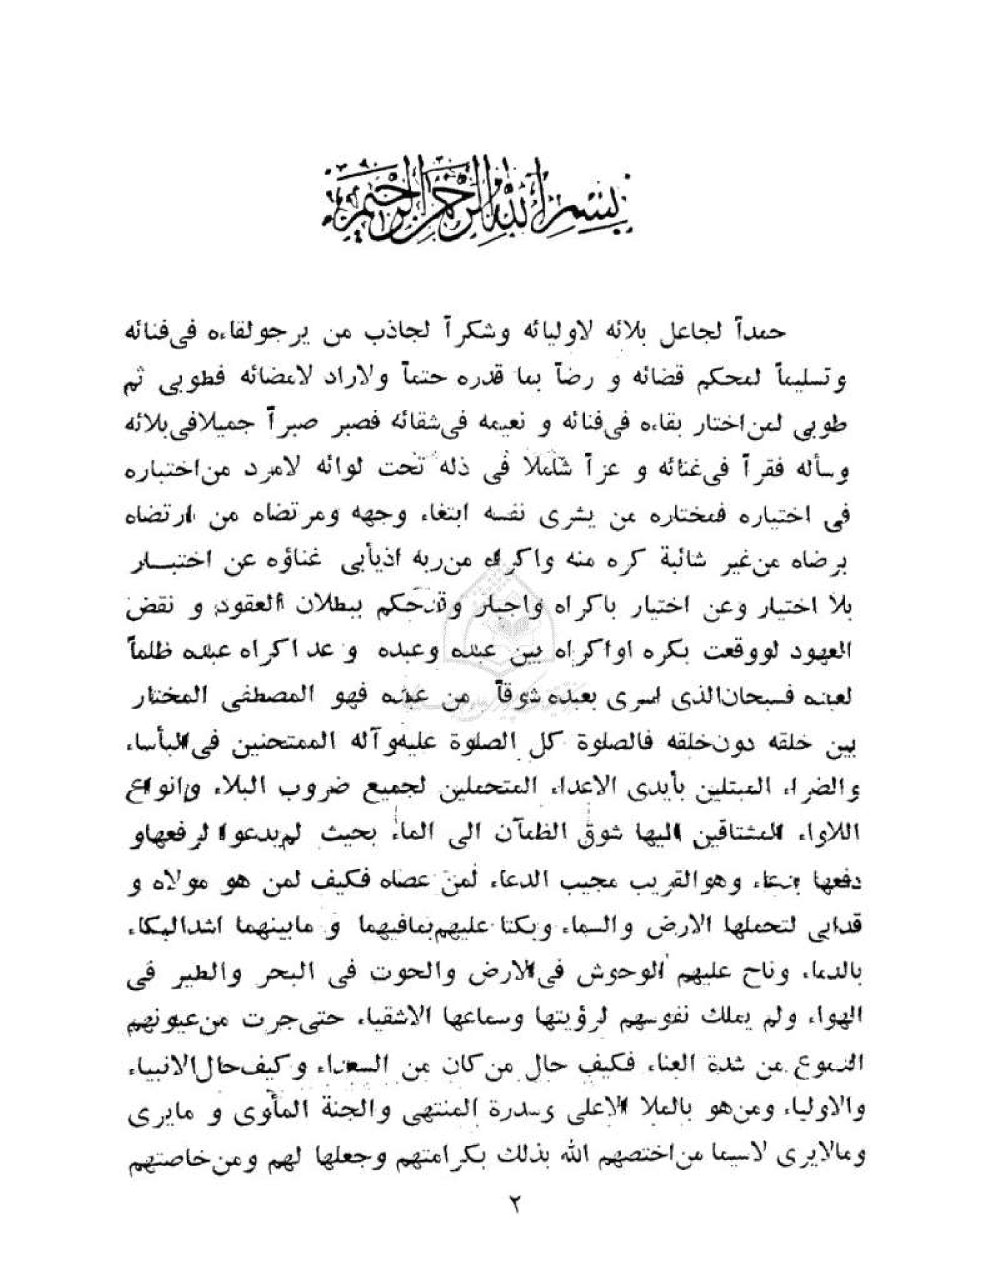 بسم الله الرحمن الرحيم
حمداً لجاعل بلائه لاوليائه وشكراً لجاذب من يرجولقاءه فى‌فنائه
وتسليماً لمحكم قضائه و رضاً بما قدره حتماً ولاراد لامضائه فطوبى ثم
طوبى لمن‌اختار بقاءه فى‌فنائه و نعيمه فى‌شقائه فصبر صبراً جميلافى‌بلائه
وسأله فقراً فى‌غنائه و عزاً شاملا فى ذله تحت لوائه لامرد من‌اختباره
فى اختياره فمختاره من يشرى نفسه ابتغاء وجهه ومرتضاه من ارتضاه
برضاه من‌غير شائبة كره منه واكراه من‌ربه اذيأبى غناؤه عن اختبار
بلا اختيار وعن اختيار باكراه واجبار وقدحكم ببطلان العقود و نقض
العهود لووقعت بكره اواكراه بين عبده وعبده وعد اكراه عبده ظلماً
لعبده فسبحان‌الذى اسرى بعبده شوقاً من عبده فهو المصطفى المختار
بين خلقه دون‌خلقه فالصلوة كل الصلوة عليه‌وآله الممتحنين فى‌البأساء
والضراء المبتلين بأيدى الاعداء المتحملين لجميع ضروب البلاء وانواع
اللاواء المشتاقين اليها شوق الظمآن الى الماء بحيث لم‌يدعوا لرفعهاو
دفعها بدعاء وهوالقريب مجيب الدعاء لمن عصاه فكيف لمن هو مولاه و
قدابى لتحملها الارض والسماء وبكتا عليهم‌بمافيهما و مابينهما اشدالبكاء
بالدماء وناح عليهم الوحوش فى‌الارض والحوت فى البحر والطير فى
الهواء ولم يملك نفوسهم لرؤيتها وسماعها الاشقياء حتى‌جرت من‌عيونهم
الدموع من شدة العناء فكيف حال من‌كان من السعداء وكيف‌حال‌الانبياء
والاولياء ومن‌هو بالملا الاعلى وسدرة المنتهى والجنة المأوى و مايرى
ومالايرى لاسيما من‌اختصهم الله بذلك بكرامتهم وجعلها لهم ومن‌خاصتهم
٢